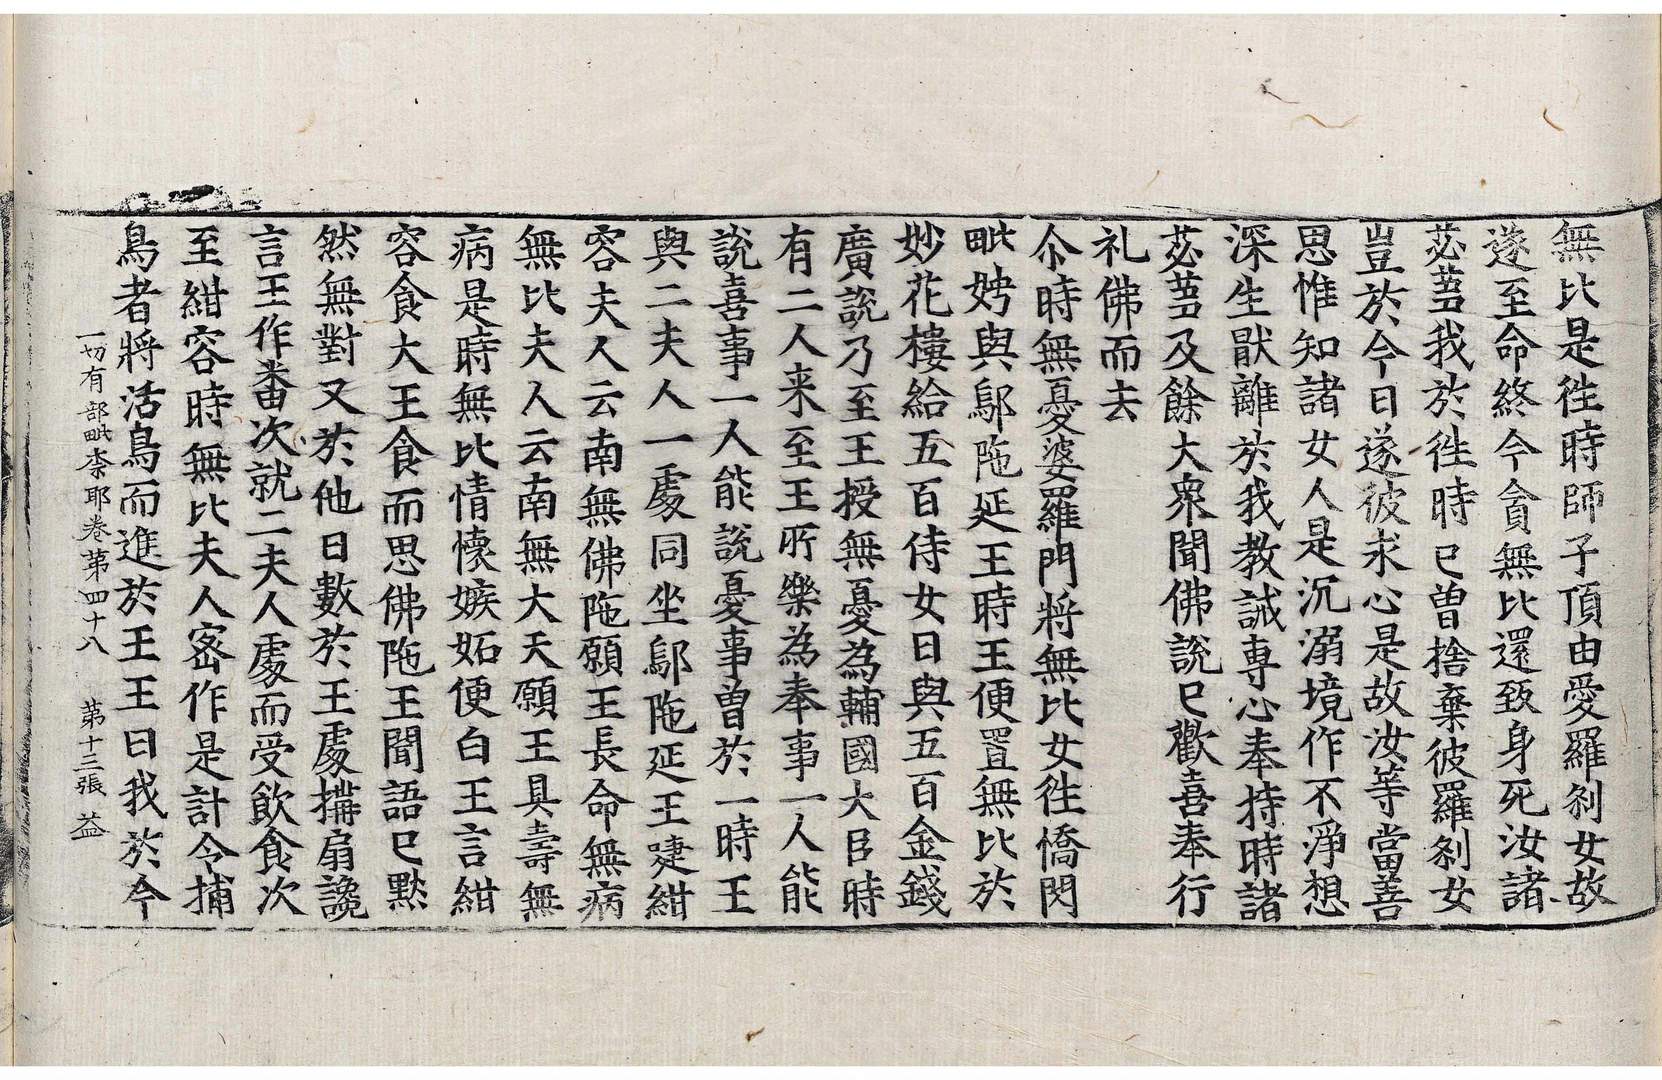 無比是徃時師子頂由愛羅刹女故
遂至命終今令貪無比還致身死汝諸
苾芻我於徃時已曽捨棄彼羅刹女
豈於今日遂彼求心是故汝等當善
思惟知諸女人是沉溺境作不淨想
深生猒離於我教誡専心奉持時諸
苾芻及餘大衆聞佛說已歡喜奉行
礼佛而去
尒時無憂婆羅門將無比女徃憍閃
毗娉與鄔陁延王時王便置無比於
妙花樓給五百侍女日與五百金錢
廣說乃至王授無憂為輔國大臣時
有二人来至王所樂為奉事一人能
說喜事一人能說憂事曽於一時王
與二夫人一處同坐鄔陁延王㖶紺
容夫人云南無佛陁願王長命無病
無比夫人云南無大天願王具壽無
病是時無比情懷嫉妬便白王言紺
容食大王食而思佛陁王聞語已黙
然無對又於他日數於王處搆扇讒
言王作番次就二夫人處而受飲食次
至紺容時無比夫人密作是計令捕
鳥者將活鳥而進於王王曰我於今
一切有部毗柰耶卷第四十八 第十三張 益